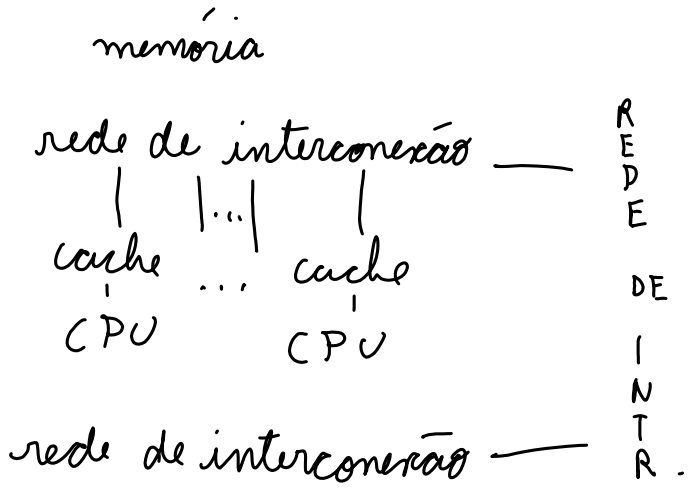 memória
rede de interconexão
...
cache ... cache
CPU CPU
rede de interconexão
REDE DE INTR.